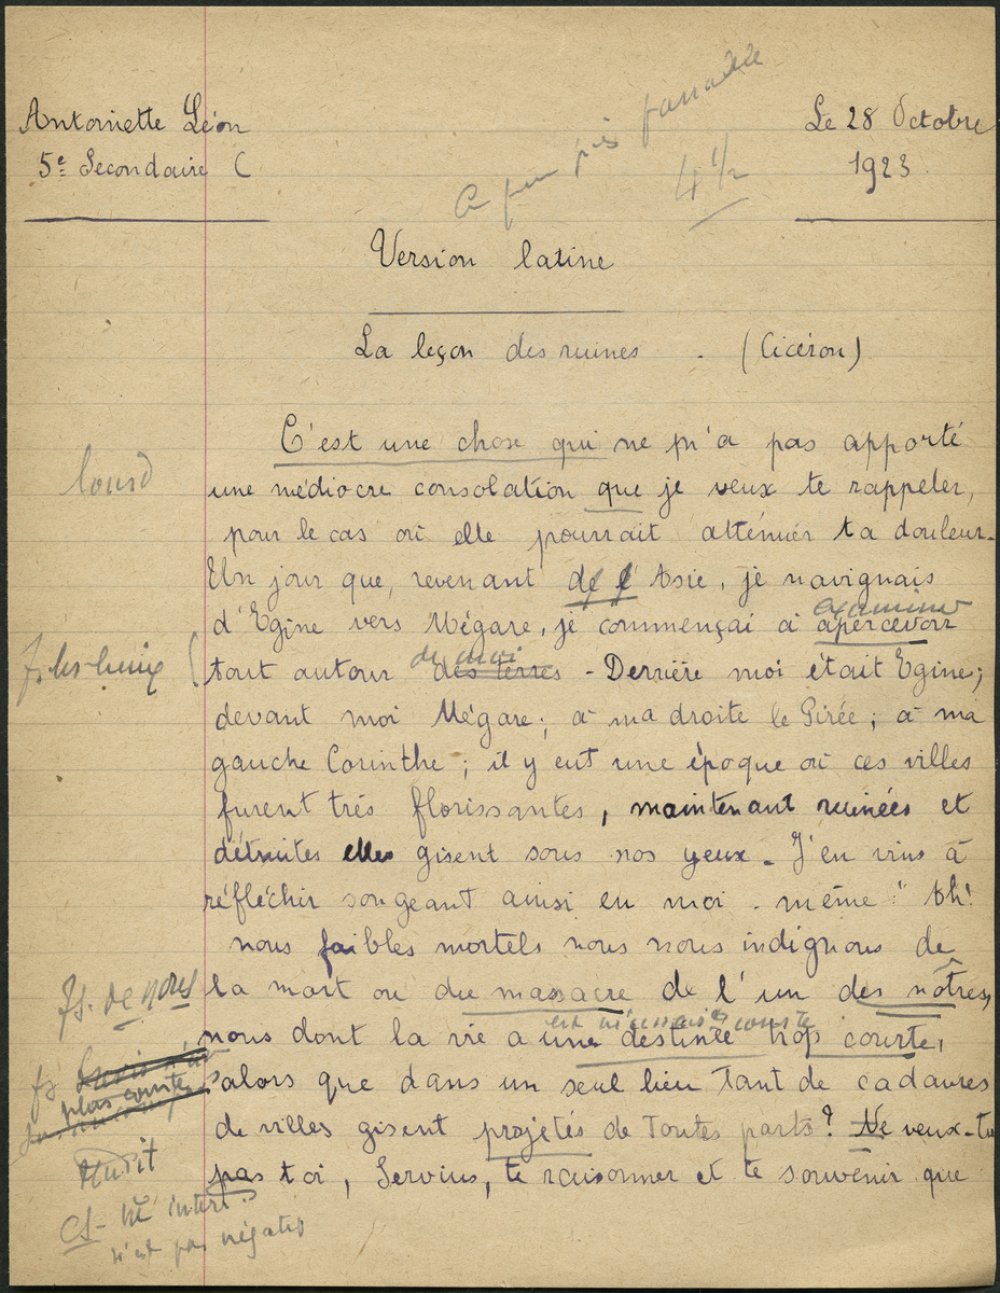 Antoinette Léon
Le 28 Octobre
5e Secondaire C
1923.
A peu près passable
4 1/2
Version latine
La leçon des ruines . (Cicéron)
C'est une chose qui ne m'a pas apporté
lourd
une médiocre consolation que je veux te rappeler,
pour le cas où elle pourrait atténuer ta douleur.
Un jour que, revenant de l' Asie, je navignais
examiner
d'Egine vers Mégare, je commençai à apercevoir
de moi
tout autour des terres - Derrière moi était Egine;
devant moi Mégare; à ma droite le Pirée; à ma
gauche Corinthe; il y eut une époque où ces villes
furent très florissantes, maintenant ruinées et
détruites elles gisent sous nos yeux - J'en vins à
réfléchir songeant ainsi en moi-même " Ah!
nous faibles mortels nous nous indignons de
fs. de nous
la mort ou du massacre de l'un des nôtres,
est courte
nous dont la vie a une destinée trop courte,
fs
plus courte
alors que dans un seul lieu tant de cadavres
de villes gisent projetés de toutes parts? Ne veux-tu
pas toi, Servius, te raisonner et te souvenir que
CS - interr.
n'est pas négatif